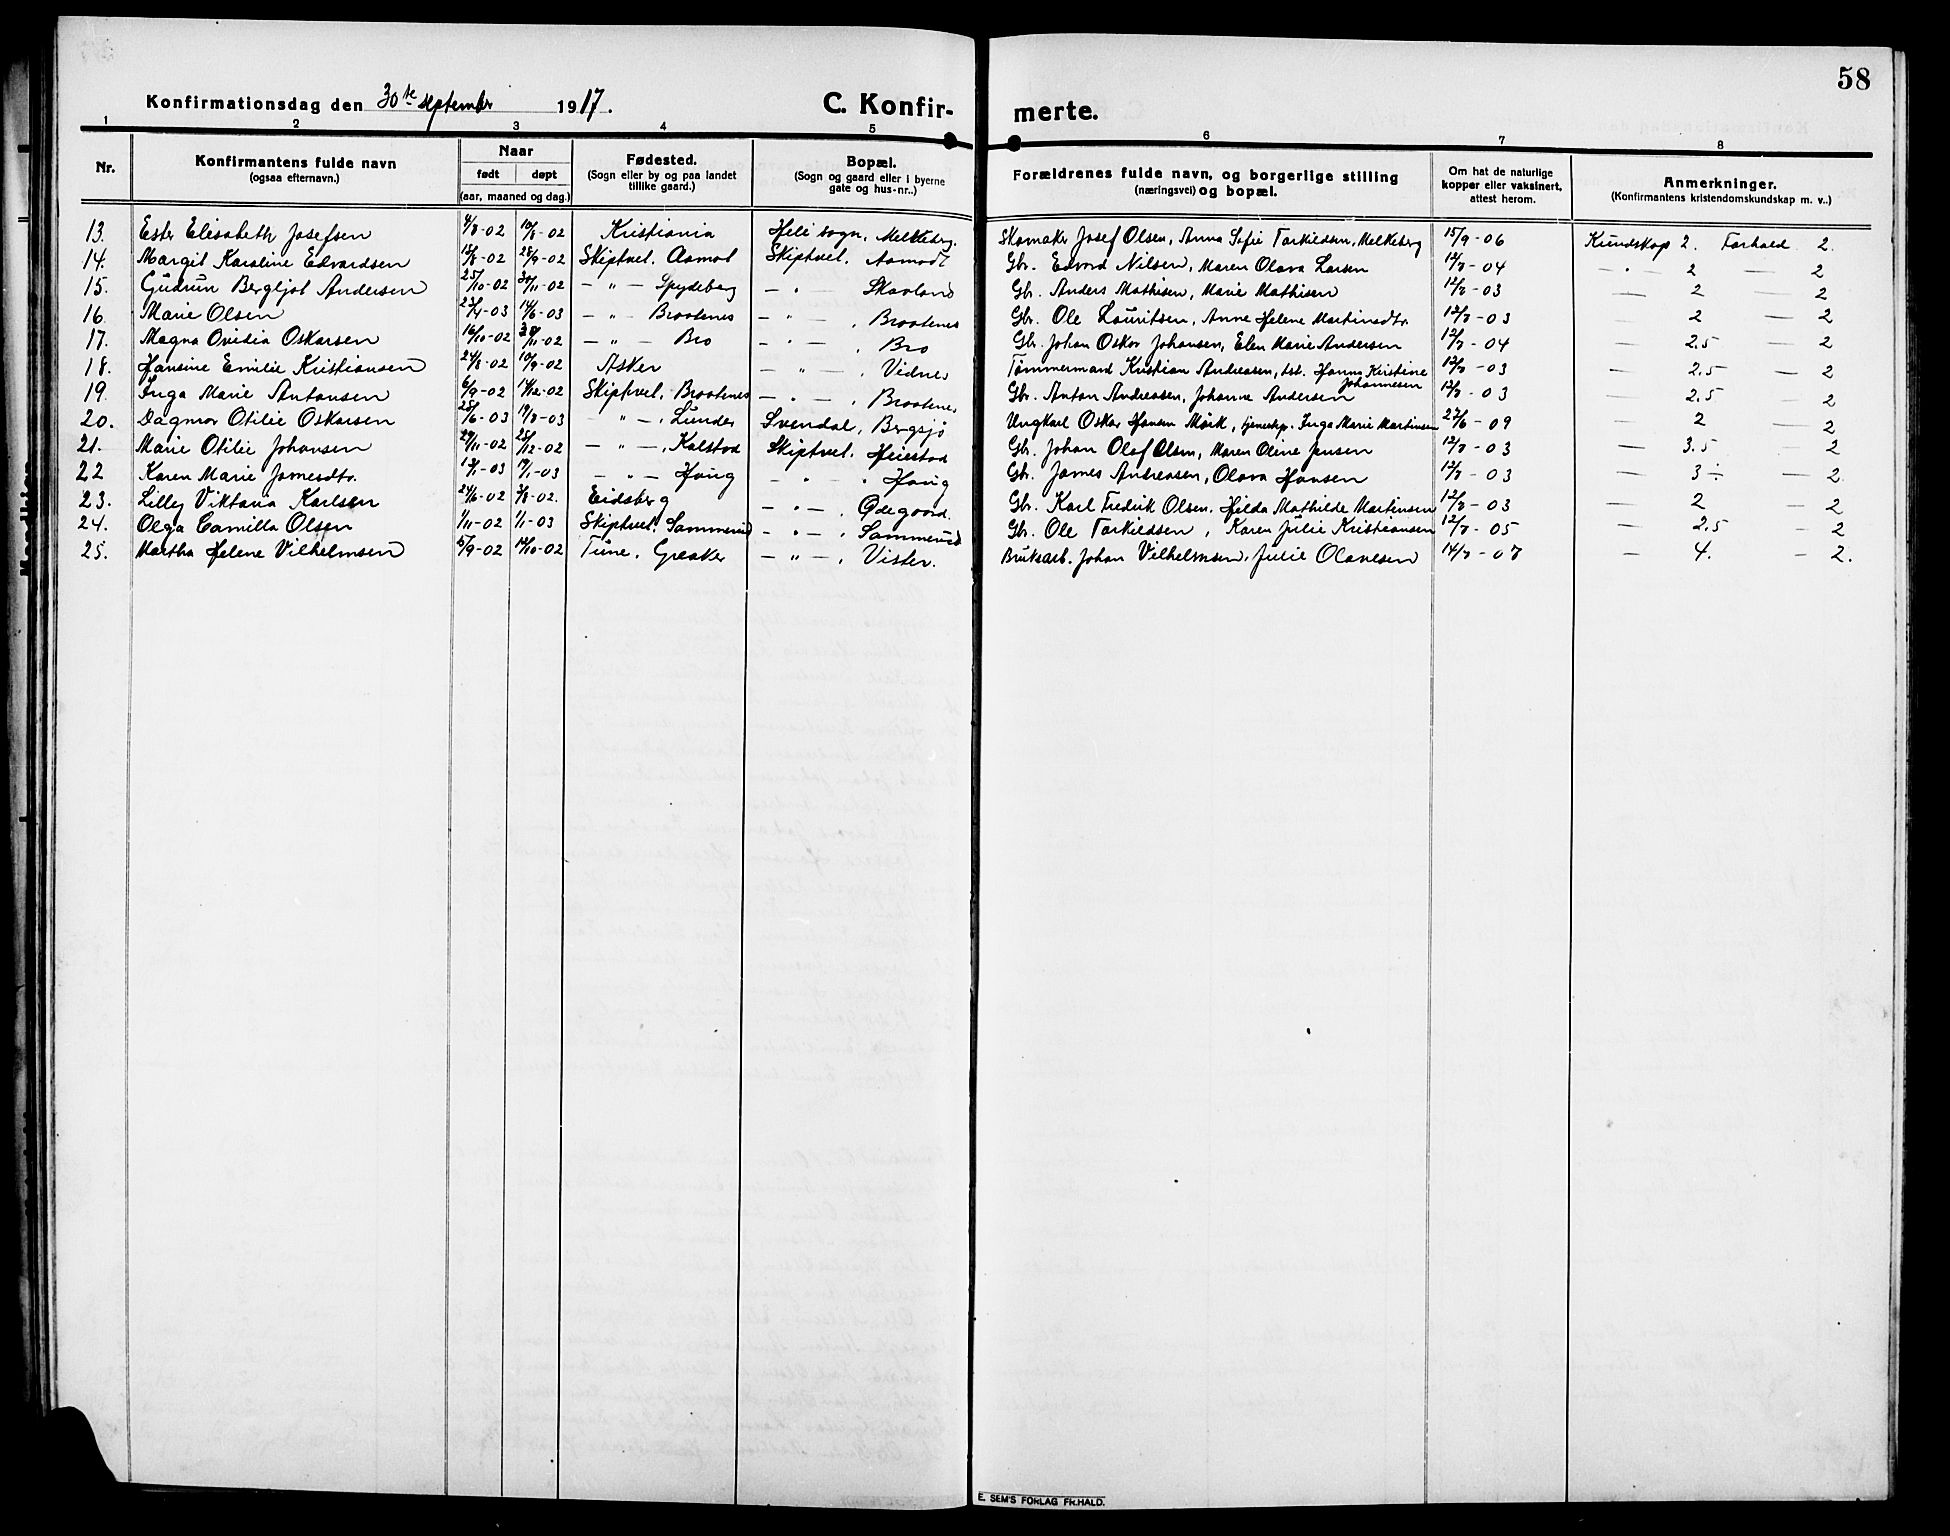 58
Konfirmationsdag den 30te september 1917.
C. Konfirmerte.
1 2 3 4 5 6 7 8
Nr. | Konfirmantens fulde navn (ogsaa efternavn.) | Naar født | døpt (aar, maaned og dag.) | Fødested. (Sogn eller by og paa landet tillike gaard.) | Bopæl. (Sogn og gaard eller i byerne gate og hus-nr..) | Forældrenes fulde navn, og borgerlige stilling (næringsvei) og bopæl. | Om hat de naturlige kopper eller vaksinert, attest herom. | Anmerkninger. (Konfirmantens kristendomskundskap m. v..)
13. Ester Elisabeth Josefsen 4/8-02 10/8-02 Kristiania Heli sogn, Melkeberg. Skomaker Josef Olsen, Anna Sofie Torkildsen, Melkeberg 15/9-06 Kundskap 2. Forhold 2.
14. Margit Karoline Edvardsen 12/8-02 28/9-02 Skiptvet. Aamot Skiptvet. Aamodt Gbr. Edvard Nilsen, Maren Olava Larsen 12/8-04 — " — 2 — 2
15. Gudrun Bergljot Andersen 25/10-02 30/11-02 — " — Spydeberg — " — Skovland Gbr. Anders Mathisen, Marie Mathisen 12/8-03 — 2 — 2
16 Marie Olsen 23/4-03 14/6-03 — " — Brootenes — " — , Brootenes Gbr. Ole Lauritsen, Anne Helene Martinsdtr. 12/8-03 — 2 — 2
17. Magna Ovidia Oskarsen 16/10-02 30/11-02 — " — Bro — " — , Bro Gbr. Johan Oskar Johansen, Elen Marie Andersen 12/8-04 — 2.5 — 2
18. Hansine Emilie Kristiansen 24/8-02 10/9-02 Asker — " — , Vidnes Tømmermand Kristian Andreasen, Hanna Kristine Johannesen 12/8-03 — 2.5 — 2
19. Inga Marie Antonsen 6/9-02 14/12-02 Skiptvet. Brootenes — " — , Brootenes Gbr. Anton Andreasen, Johanne Andersen 12/8-03 — 2.5 — 2
20. Dagmar Otilie Oskarsen 25/6-03 19/8-03 " — , Lunder Svendal, Bergsjø Ungkarl Oskar Hansen Mørk, tjenestep. Inga Marie Martinsen 27/6-09 — 2 — 2
21. Marie Otilie Johansen 27/11-02 25/12-02 — " — , Kolstad Skiptvet, Heiestad Gbr. Johan Olaf Olsen, Maren Oline Jensen 12/8-03 — 3.5 — 2
22 Karen Marie Jamesdtr. 12/1-03 19/1-03 — " — Haug — " — , Haug Gbr. James Andreasen, Olava Hansen 12/8-03 — 3÷ — 2.
23. Lilly Viktoria Karlsen 24/6-02 3/8-02. Eidsberg — " — , Ødegaard. Gbr. Karl Fredrik Olsen. Hilda Mathilde Martinsen 12/8-03 — 2 — 2
24. Olga Camilla Olsen 1/11-02 1/1-03 Skiptvet. Sammerud — " — , Sammerud Gbr. Ole Torkildsen, Karen Julie Kristiansen 12/8-05 — 2.5 — 2
25. Martha Helene Vilhelmsen 5/9-02 19/10-02 Tune, Greaker — " — , Vister. Bruksarb. Johan Vilhelmsen, Julie Olavesen 14/8-07 — 4. — 2.
E. SEM'S FORLAG FR.HALD.